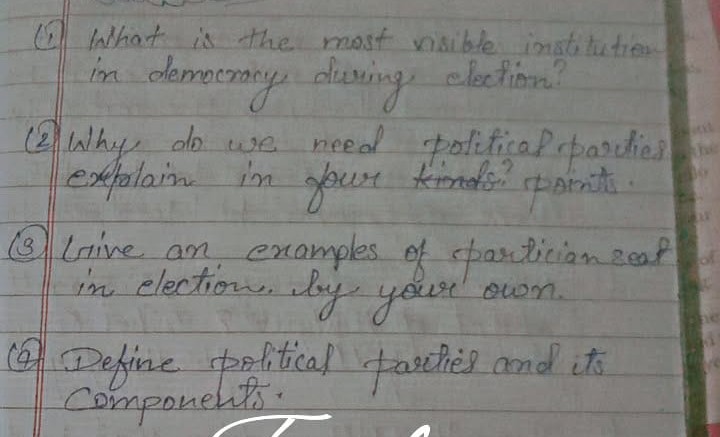 (1) What is the most visible institution
in democracy during election?
(2) Why do we need political parties
explain in four kinds? points.
(3) Give an examples of partician seat
in election. by your own.
(4) Define political parties and its
Components.